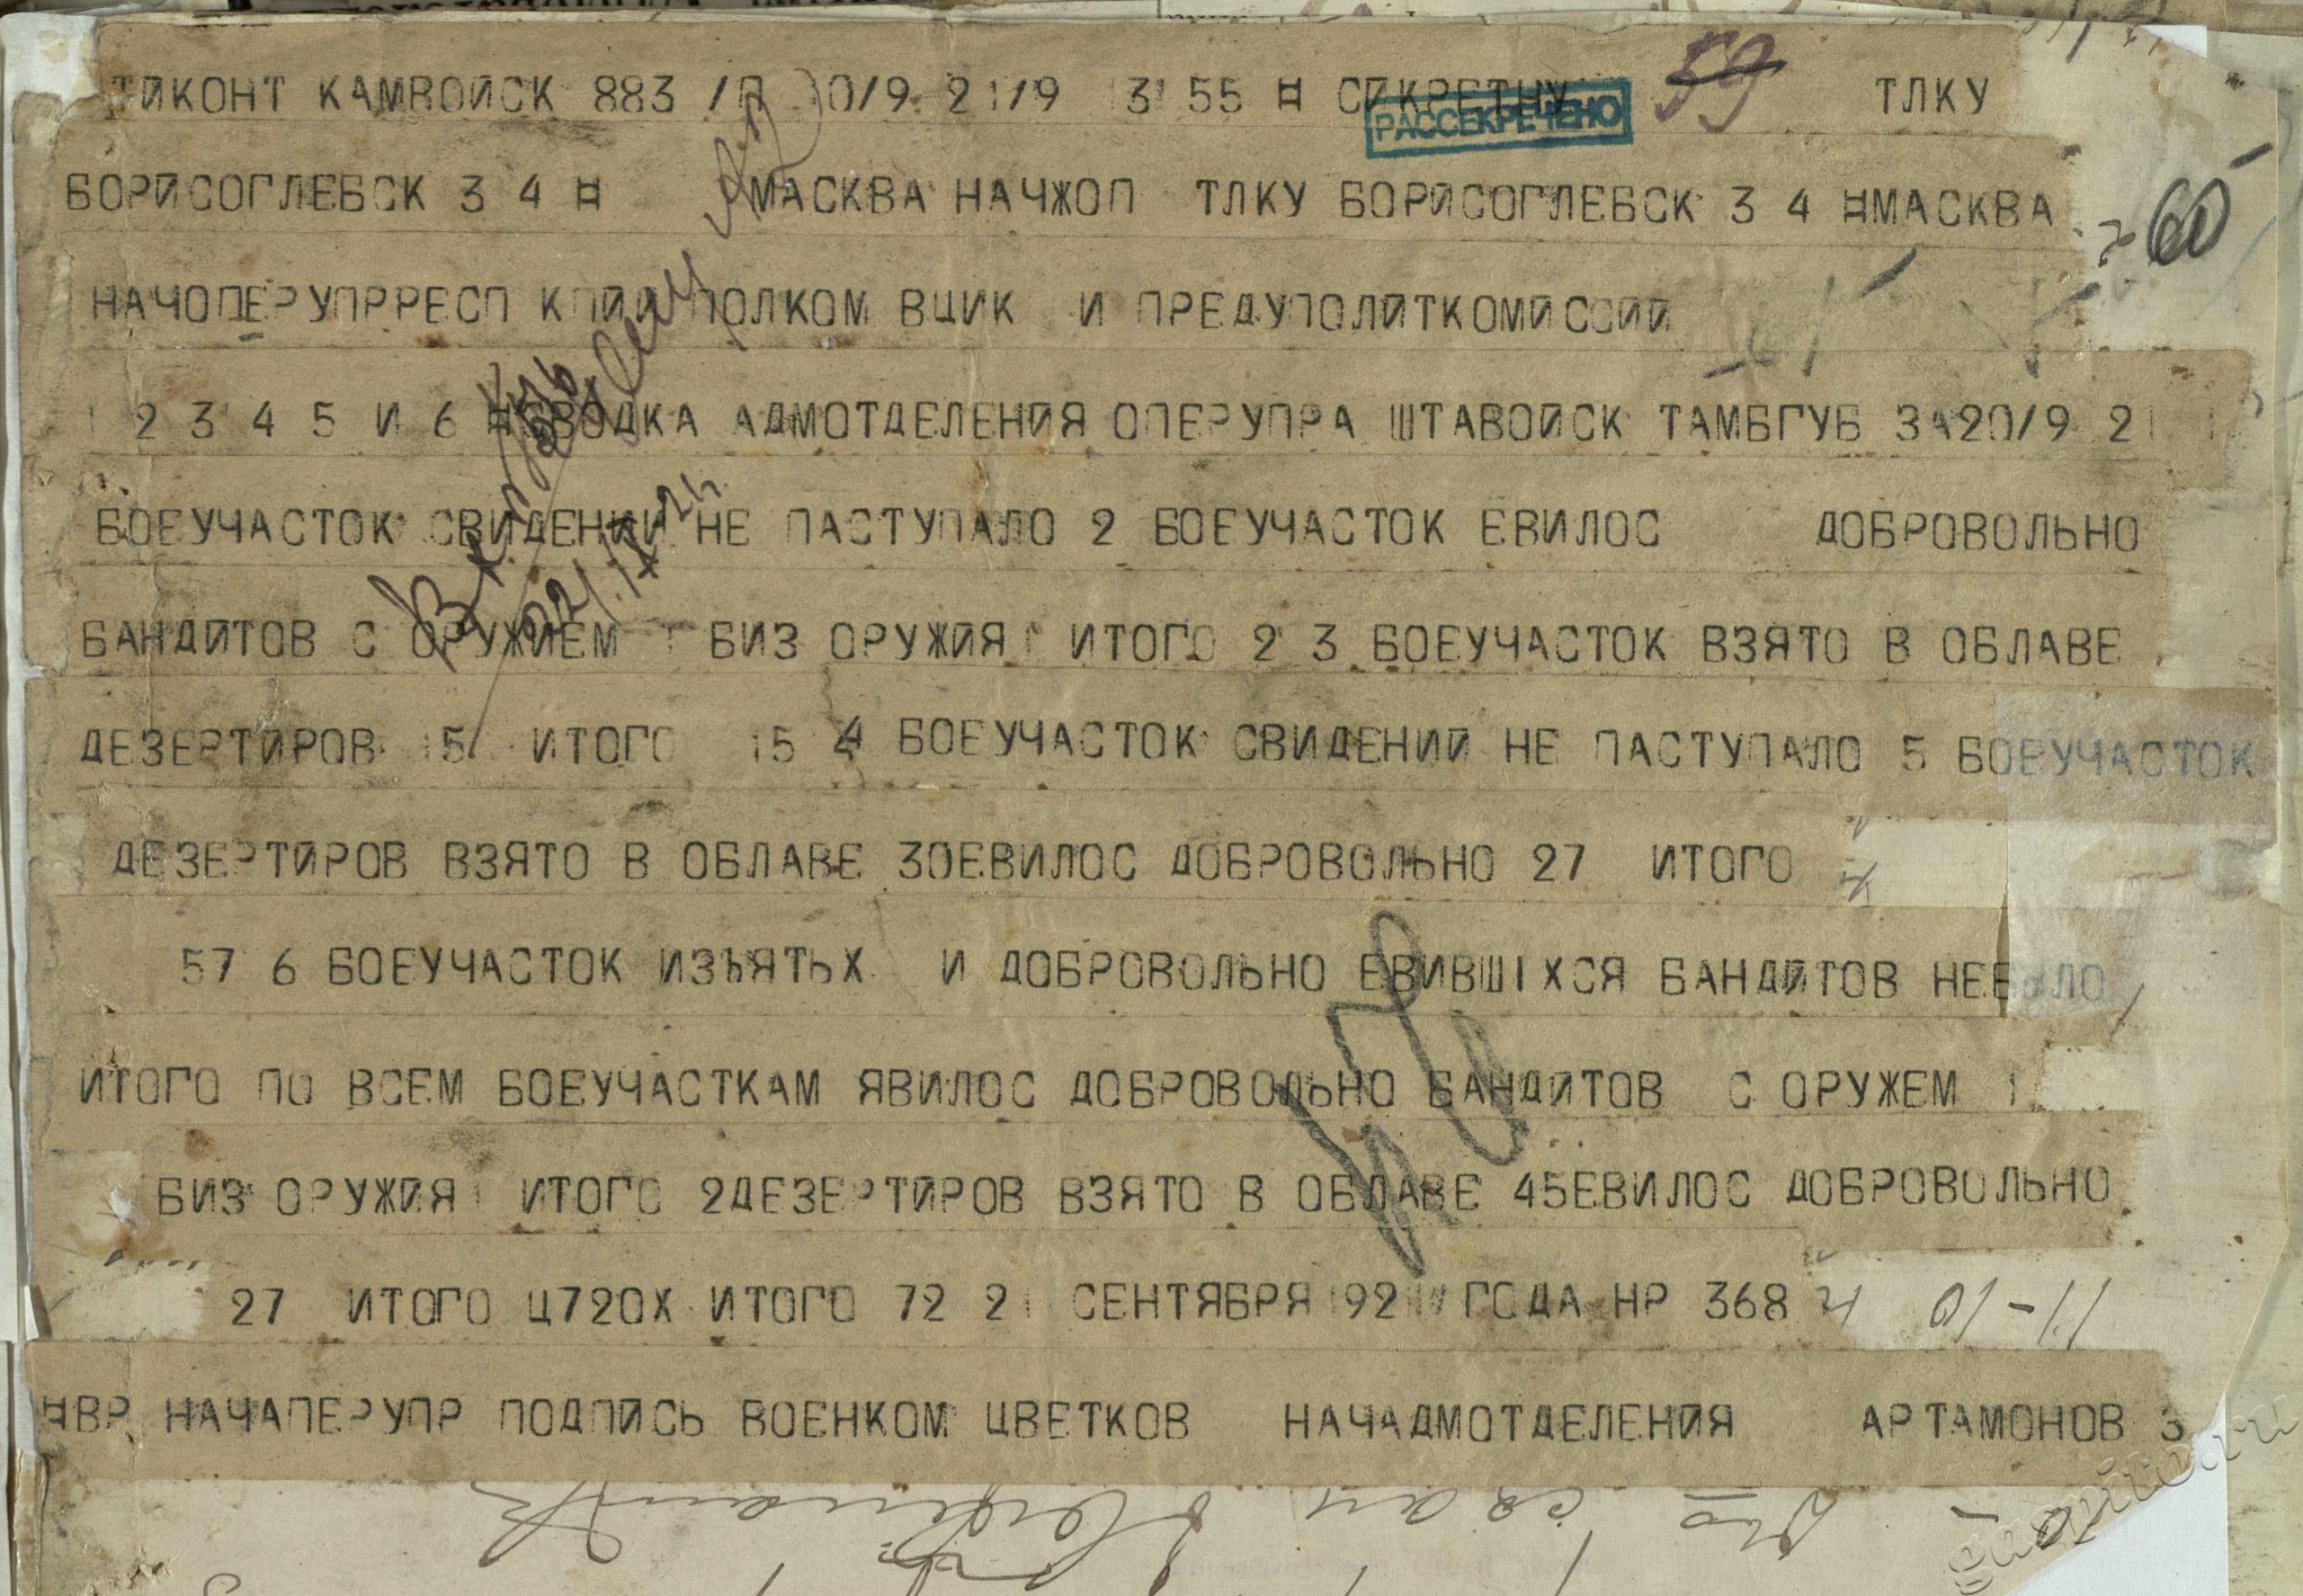 ТИКОНТ КАМВОЙСК 883 /П 30/9 21/9 13 55 ¤ СИКРЕТНУ 59 ТЛКУ
РАССЕКРЕЧЕНО
БОРИСОГЛЕБСК 3 4 ¤ МАСКВА НАЧЖОП ТЛКУ БОРИСОГЛЕБСК 3 4 ¤МАСКВА
60
НАЧОПЕРУПРРЕСП КПИИ ПОЛКОМ ВЦИК И ПРЕДУПОЛИТКОМИССИИ
1 2 3 4 5 И 6 ¤СВОДКА АДМОТДЕЛЕНИЯ ОПЕРУПРА ШТАВОЙСК ТАМБГУБ ЗА20/9 21 1
БОЕУЧАСТОК СВИДЕНИЙ НЕ ПАСТУПАЛО 2 БОЕУЧАСТОК ЕВИЛОС ДОБРОВОЛЬНО
БАНДИТОВ С ОРУЖИЕМ 1 БИЗ ОРУЖИЯ 1 ИТОГО 2 3 БОЕУЧАСТОК ВЗЯТО В ОБЛАВЕ
ДЕЗЕРТИРОВ 15 ИТОГО 15 4 БОЕУЧАСТОК СВИДЕНИЙ НЕ ПАСТУПАЛО 5 БОЕУЧАСТОК
ДЕЗЕРТИРОВ ВЗЯТО В ОБЛАВЕ 30ЕВИЛОС ДОБРОВОЛЬНО 27 ИТОГО
57 6 БОЕУЧАСТОК ИЗЪЯТЬХ И ДОБРОВОЛЬНО ЕВИВШIХСЯ БАНДИТОВ НЕБЫЛО
ИТОГО ПО ВСЕМ БОЕУЧАСТКАМ ЯВИЛОС ДОБРОВОЛЬНО БАНДИТОВ С ОРУЖЕМ 1
БИЗ ОРУЖИЯ 1 ИТОГО 2ДЕЗЕРТИРОВ ВЗЯТО В ОБЛАВЕ 45ЕВИЛОС ДОБРОВОЛЬНО
27 ИТОГО Ц720Х ИТОГО 72 21 СЕНТЯБРЯ 1921 ГОДА НР 368
¤ВР НАЧАПЕРУПР ПОДПИСЬ ВОЕНКОМ ЦВЕТКОВ НАЧАДМОТДЕЛЕНИЯ АРТАМОНОВ 3
gaspito.ru